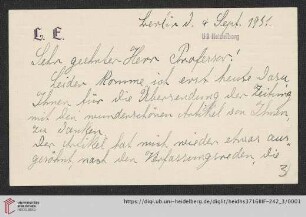 Berlin d. 4 Sept. 1931.
L. E.
UB Heidelberg
Sehr geehrter Herr Professor!
Leider komme ich erst heute dazu
Ihnen für die Übersendung der Zeitung
mit den wunderschönen Artikel von Ihnen,
zu danken.
Der Artikel hat mich wieder etwas aus-
gesöhnt nach den Verfassungsreden, die
3
https://digi.ub.uni-heidelberg.de/diglit/heidhs3716BIIF-242_3/0001